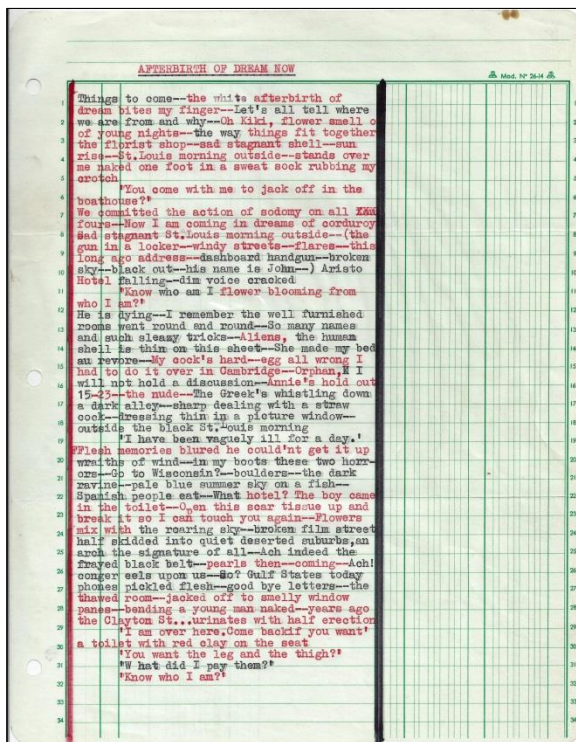 AFTERBIRTH OF DREAM NOW
Mod. Nº 26-14
1
2
3
4
5
6
7
8
9
10
11
12
13
14
15
16
17
18
19
20
21
22
23
24
25
26
27
28
29
30
31
32
33
34
Things to come--the white afterbirth of
dream bites my finger--Let's all tell where
we are from and why--Oh Kiki, flower smell o
of young nights--the way things fit together
the florist shop--sad stagnant shell--sun
rise--St.Louis morning outside--stands over
me naked one foot in a sweat sock rubbing my
crotch
'You come with me to jack off in the
boathouse?'
We committed the action of sodomy on all
fours--Now I am coming in dreams of corduroy
Sad stagnant St.Louis morning outside--(the
gun in a locker--windy streets--flares--this
long ago address--dashboard handgun--broken
sky--black out--his name is John--) Aristo
Hotel falling--dim voice cracked
'Know who am I flower blooming from
who I am?'
He is dying--I remember the well furnished
rooms went round and round--So many names
and such sleazy tricks--Aliens, the human
shell is thin on this sheet--She made my bed
au revore--My cock's hard--egg all wrong I
had to do it over in Cambridge--Orphan, I
will not hold a discussion--Annie's hold out
15-23--the nude--The Greek's whistling down
a dark alley--sharp dealing with a straw
cock--dressing thin in a picture window--
outside the black St.Louis morning
'I have been vaguely ill for a day.'
Flesh memories blured he could'nt get it up
wraiths of wind--in my boots these two horr-
ors--Go to Wisconsin?--boulders--the dark
ravine--pale blue summer sky on a fish--
Spanish people eat--What hotel? The boy came
in the toilet--Open this scar tissue up and
break it so I can touch you again--Flowers
mix with the roaring sky--broken film street
half skidded into quiet deserted suburbs,an
arch the signature of all--Ach indeed the
frayed black belt--pearls then--coming--Ach!
conger eels upon us--So? Gulf States today
phones pickled flesh--good bye letters--the
thawed room--jacked off to smelly window
panes--bending a young man naked--years ago
the Clayton St...urinates with half erection
'I am over here.Come backif you want'
a toilet with red clay on the seat
'You want the leg and the thigh?'
'W hat did I pay them?'
'Know who I am?'